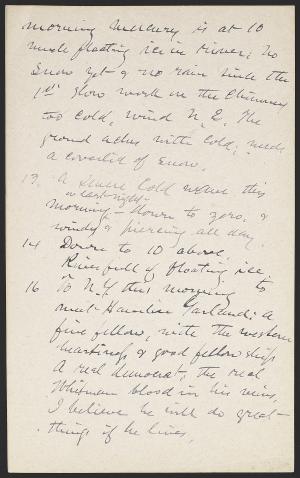 morning Mercury is at 10
much floating ice in river; no
snow yet & no rain since the
1st Slow work on the Chimney
too cold, wind N.E. The
ground aches with cold; needs
a coverlid of snow.
13. A severe cold wave this
or last night
morning - down to zero. &
windy & piercing all day.
14 Down to 10 above,
River full of floating ice,
16 To N.Y. this morning to
meet Hamlin Garland: a
fine fellow, with the western
heartiness & good fellowship
A real democrat, the real
Whitman blood in his veins,
I believe he will do great
things if he lives.